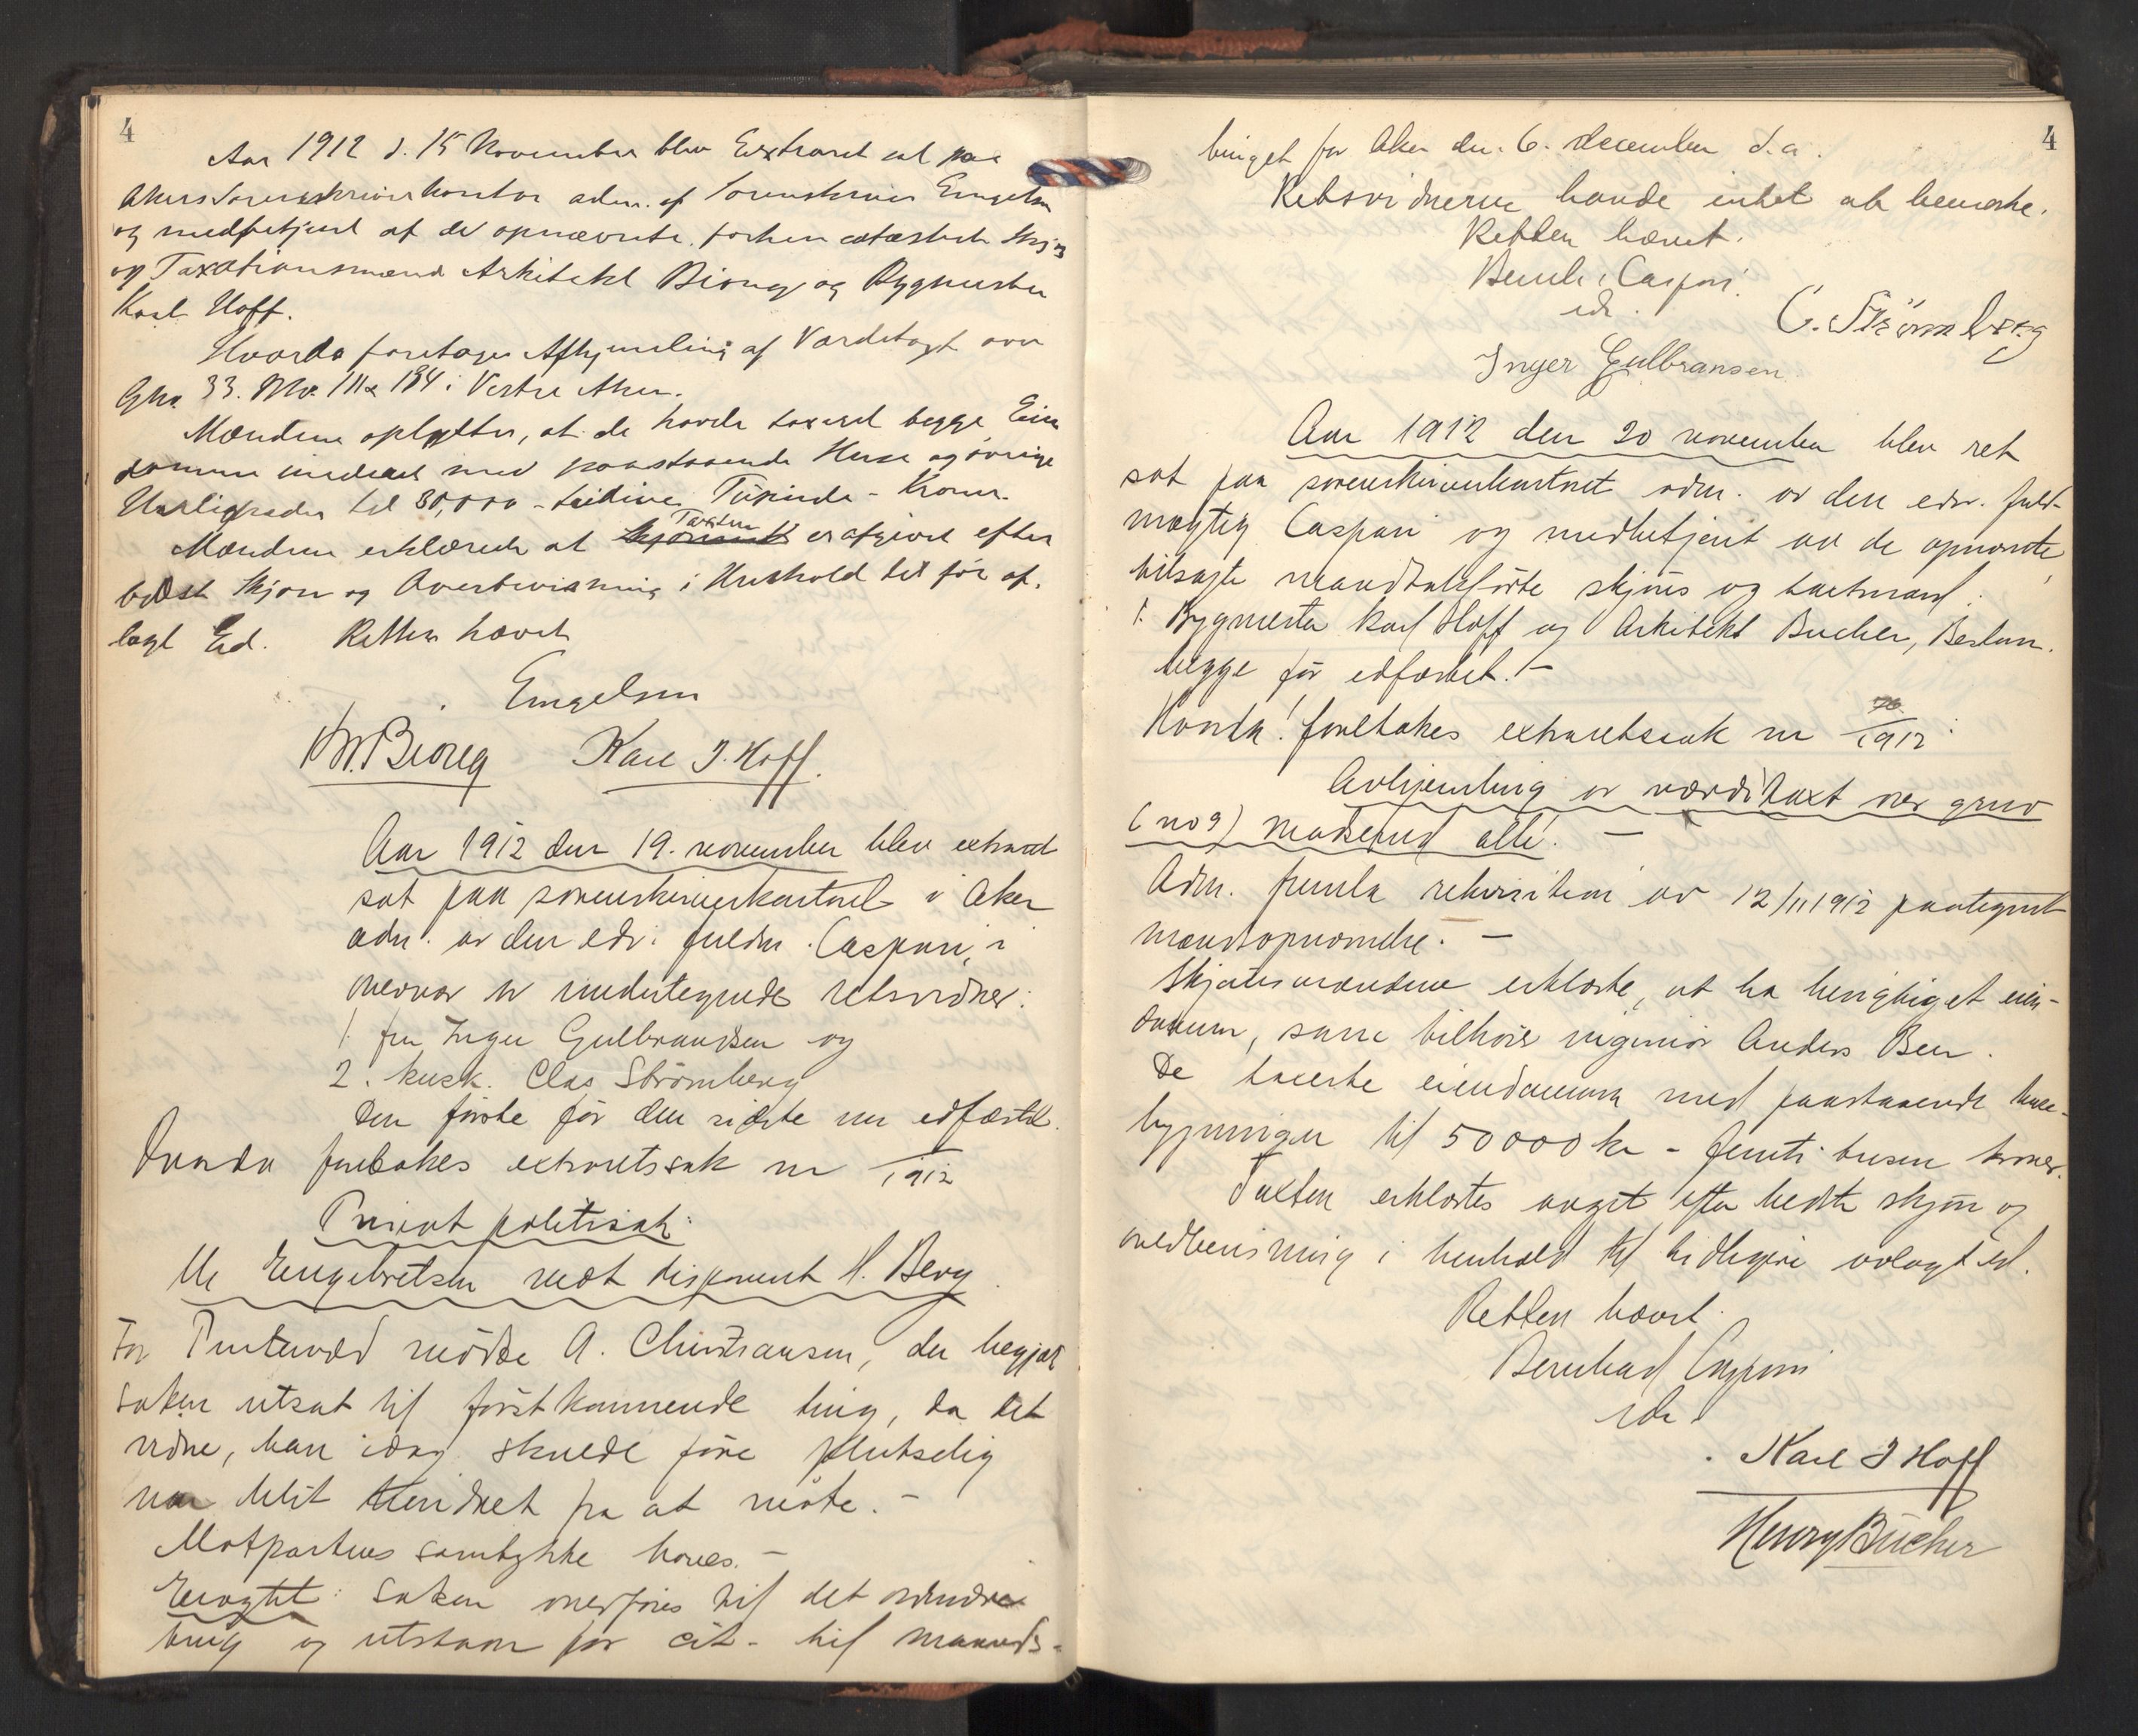 4
Aar 1912 d. 15 November blev Extraret sat paa
Akers Sorenskriverkontor adm. af Sorenskriver Engelsen
og medbetjent af de opnævnte, forhen edfæstede Skjøns
og Taxationsmænd Arkitekt Biong og Bygmester
Karl Hoff.
Hvorda foretages Afhjemling af Værditaxt over
Gno. 33. Bno. 111 & 184 i Vestre Aker.
Mændene oplyste, at de havde taxeret begge Eien
domme med paastaaende Huse og øvrige
Herligheder til 30,000 - tredive Tusinde - Kroner.
Mændene erklærede at Taxten er afgivet efter
bedste Skjøn og Overbevisning i Henhold til før af-
lagt Ed. Retten hævet
Engelsen
Chr. Biong Karl J. Hoff.
Aar 1912 den 19. november blev extraret
sat paa sorenskriverkontoret i Aker
adm. av den edsv. fuldm. Caspari, i
overvær av undertegnede retsvidner:
1 fru Inger Gulbrandsen og
2. kusk. Clas Strömberg
Den første før den sidste nu edfæstet.
Hvorda foretokes extraretssak nr /1912
Privat politisak:
Engebretsen mot disponent H. Berg
For møtte A. Christiansen, der begjærte
saken utsat til førstkommende ting, da det
vidne, han idag skulde føre plutselig
var blit hindret fra at møte. -
Motpartens samtykke haves. -
Eragtet: saken overføres til det ordinære
ting og utstaar før cit- til maaneds-
4
tinget for Aker den 6. december d.a.
Retsvidnerne hadde intet at bemerke.
Retten hævet.
Bernh. Caspari
edv.
C. Strömberg
Inger Gulbransen
Aar 1912 den 20 november blev ret
sat paa sorenskriverkontoret adm. av den edsv. fuld-
mægtig Caspari og medbetjent av de opnævnte,
tilsagte mandtalsførte skjøns og taxtmænd:
1. Bygmester Karl Hoff og Arkitekt Bucher, Bestum.
begge før edfæstet. -
Hvorda! foretokes extraretssak nr 70/1912:
Avhjemling av værditaxt over gnr
(no 9) Madserud allé. -
Adm. fremla rekvisition av 12/11 1912 paategnet
mandsopnævnelse. -
Skjønsmændene erklærte, at ha besigtiget eien-
dommen, som tilhører ingeniør Anders Beer.
De taxerte eiendommen med paastaaende hus-
bygninger til 50000 kr - femti tusen kroner.
Taxten erklærtes avgit efter bedste skjøn og
overbevisning i henhold til tidligere avlagt ed.
Retten hævet.
Bernhard Caspari
edv.
Karl J Hoff
Henry Bucher